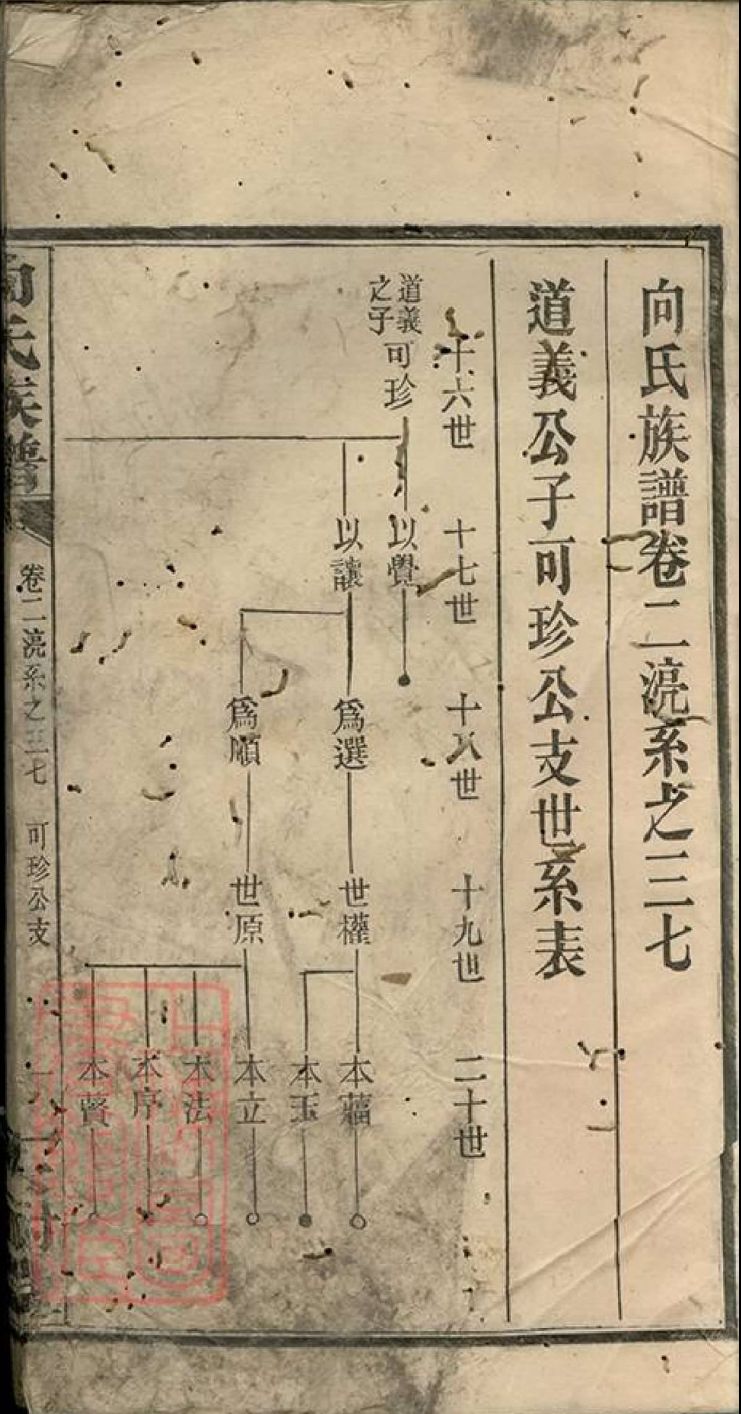 向氏族譜卷二滰系之三七
道義公子可珍公支世系表
十六世
十七世
十八世
十九世
二十世
道義之子
可珍
以覺
以讓
為選
為順
世權
世原
本立
本玉
本法
本序
本贒
向氏族譜
卷二滰系之三七
可珍公支